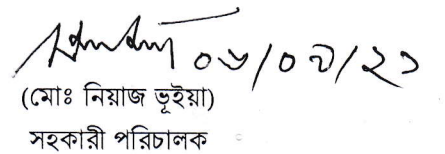 ০৬/০৯/২১
(মোঃ নিয়াজ ভূইয়া)
সহকারী পরিচালক